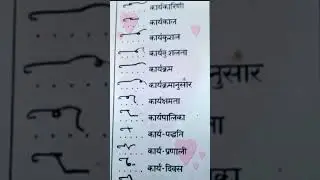 कार्यकारिणी
कार्यकाल
कार्यकुशल
कार्यकुशलता
कार्यक्रम
कार्यक्रमानुसार
कार्यक्षमता
कार्यपालिका
कार्य-पद्धति
कार्य-प्रणाली
कार्य-दिवस